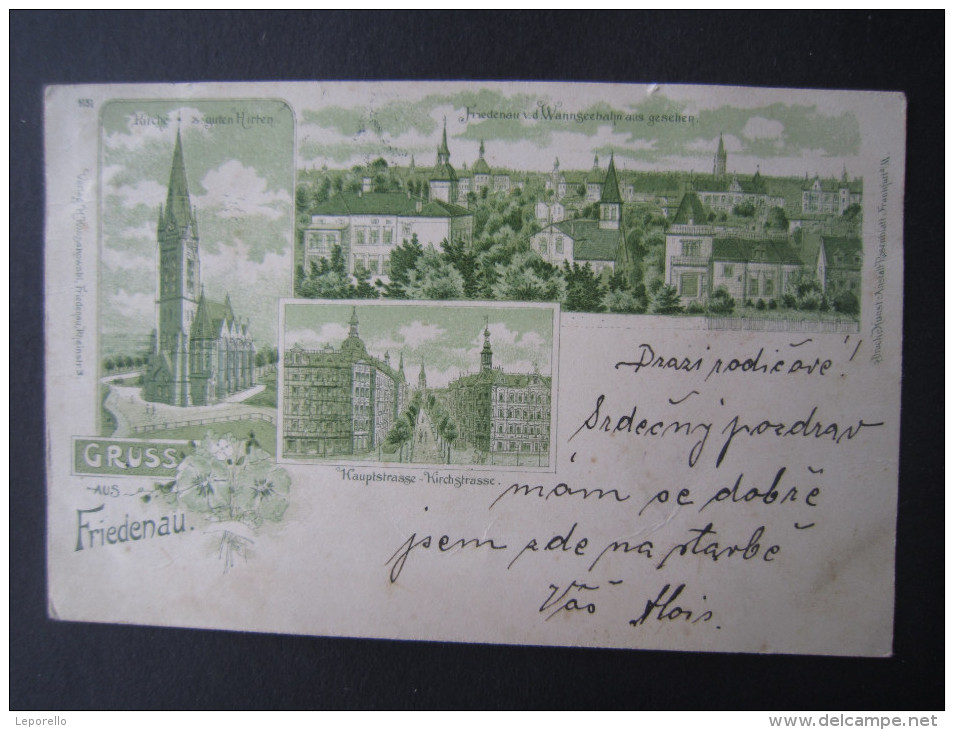 9131
Kirche z. guten Hirten
Friedenau v. d. Wannseebahn aus gesehen
Hauptstrasse - Kirchstrasse.
GRUSS
AUS
Friedenau.
Drazí rodičové!
Srdečný pozdrav
mám se dobře
jsem zde na stavbě
Váš Alois.
Leporello
delcampe.net